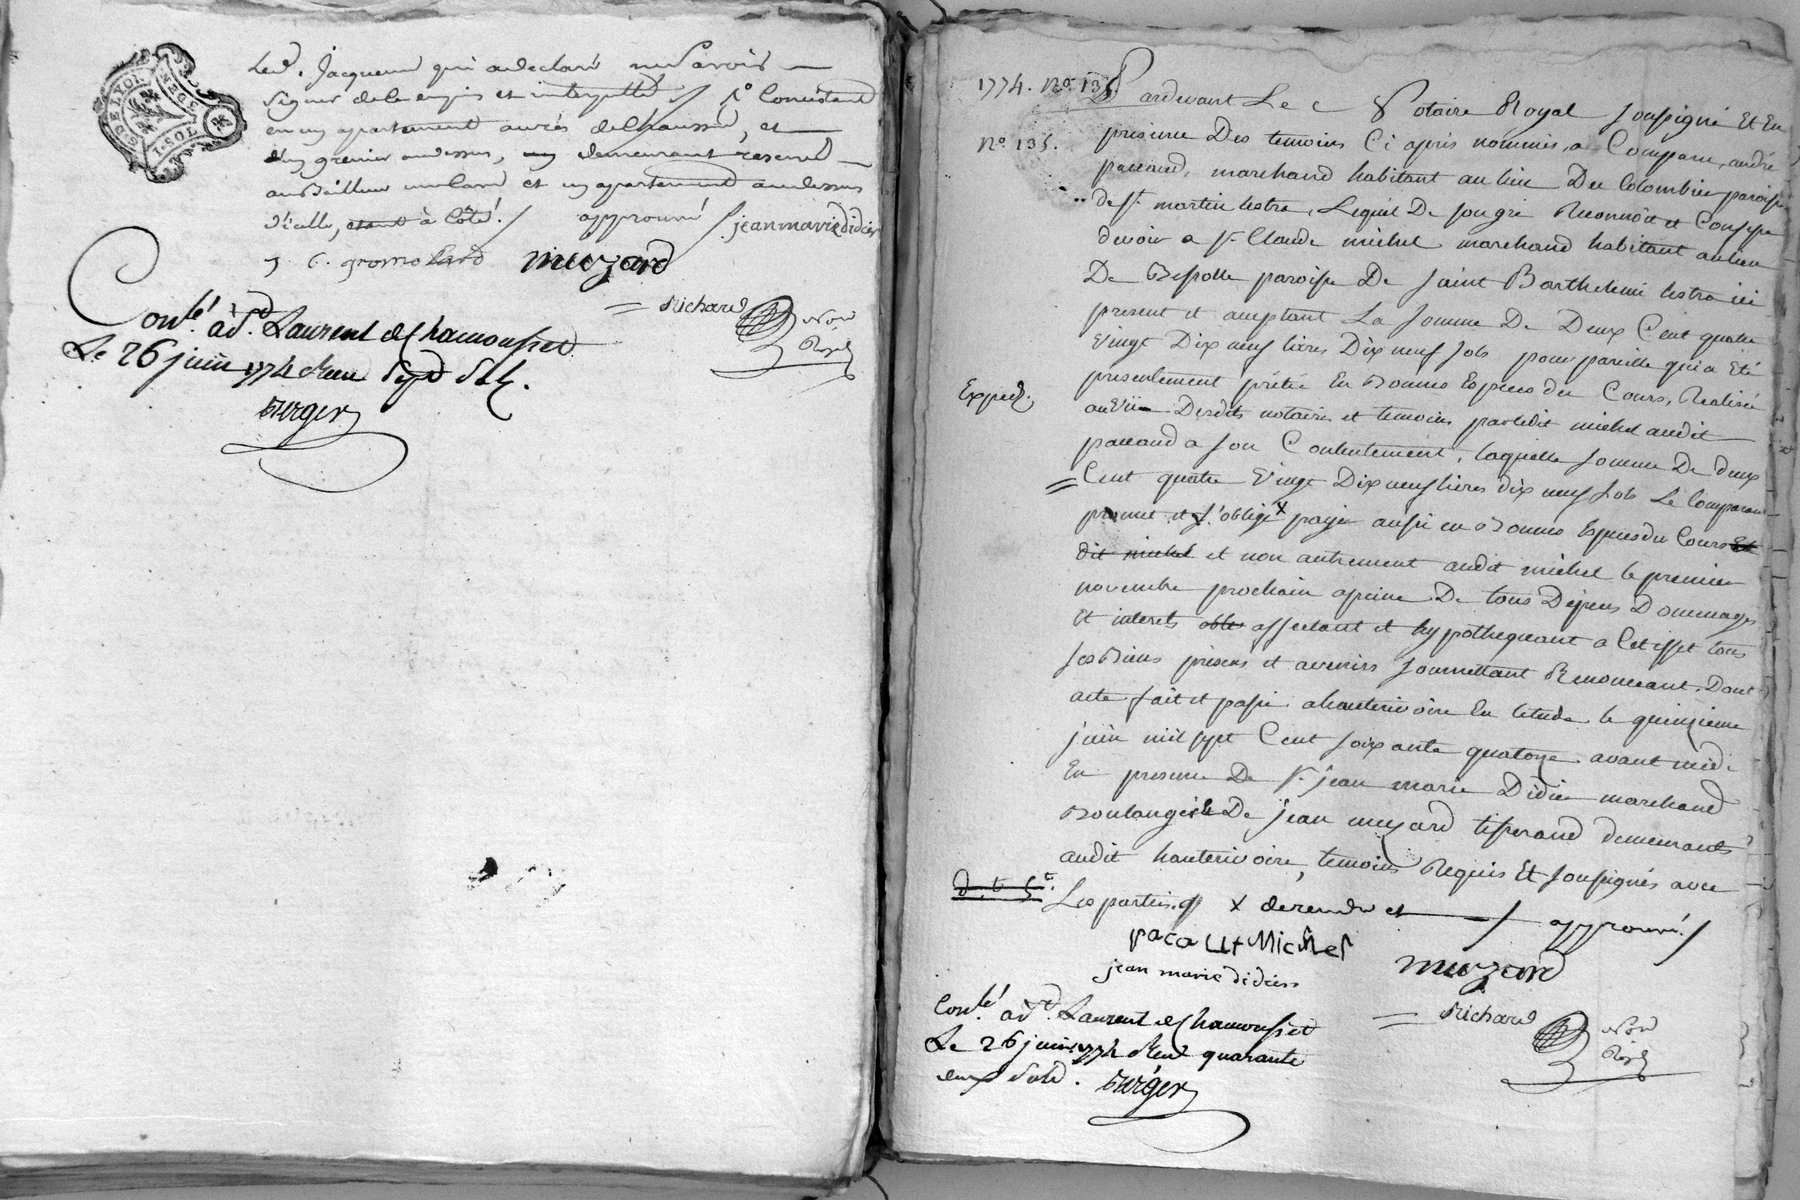 G. DE LYON
1. SOL
led. Jacquemd qui a declaré ne savoir
signer de ce enquis et interpellé / 1° Consistant
en un apartement au rés de Chaussée, et
d'un grenier audessus, demeurant reservé
au Bailleur une cave et un apartement audessus
d'icelle, etant à Côté. / approuvé / jean marie didier
J. C. gromolard muzard
Richard Not Royal
Conlé. à St. Laurent de Chamousset
Le 26 juin 1774 Reçu Sept Sols.
Berger
1774. No. 135. Pardevant Le Notaire Royal soussigné Et En
No. 135. presence Des temoins Ci aprés nommés, a Comparu, andré
pacaud, marchand habitant au lieu Du Colombier paroisse
de St. martin lestra, Lequel De son gré Reconnoit et Confesse
devoir a Sr. Claude michel marchand habitant au lieu
De paroisse De Saint Barthelemi lestra ici
present et acceptant La Somme De Deux Cent quatre
Vingt Dix neuf livres Dix neuf sols pour pareille qui a Eté
presentement prêtée En Bonnes Especes du Cours, Realisée
Expéd. au Vu Desdits notaire et temoins par ledit michel audit
pacaud a son Contentement, laquelle somme De deux
Cent quatre Vingt Dix neuf livres dix neuf sols Le Comparant
promet et s'oblige x payer aussi en Bonnes Especes du Cours Et
dit michel et non autrement audit michel le premier
novembre prochain a peine De tous Dépens Dommages
Et interets oble affectant et hypothequant a Cet effet tous
ses Biens présens et avenirs soumettant Renonceant. Dont
acte fait et passé a hauterivoire En l'etude le quinzieme
juin mil sept Cent soixante quatorze avant midi
En presence De Sr. jean marie Didier marchand
Boulanger & De jean muzard tisserand demeurants
audit hauterivoire, temoins Requis Et soussignés avec
Les parties. x de rendre et / approuvé /
pacaut Michel
jean marie didier muzard
Richard Not Royal
Conlé. à St. Laurent de Chamousset
Le 26 juin 1774 Reçu quarante
deux Sols. Berger